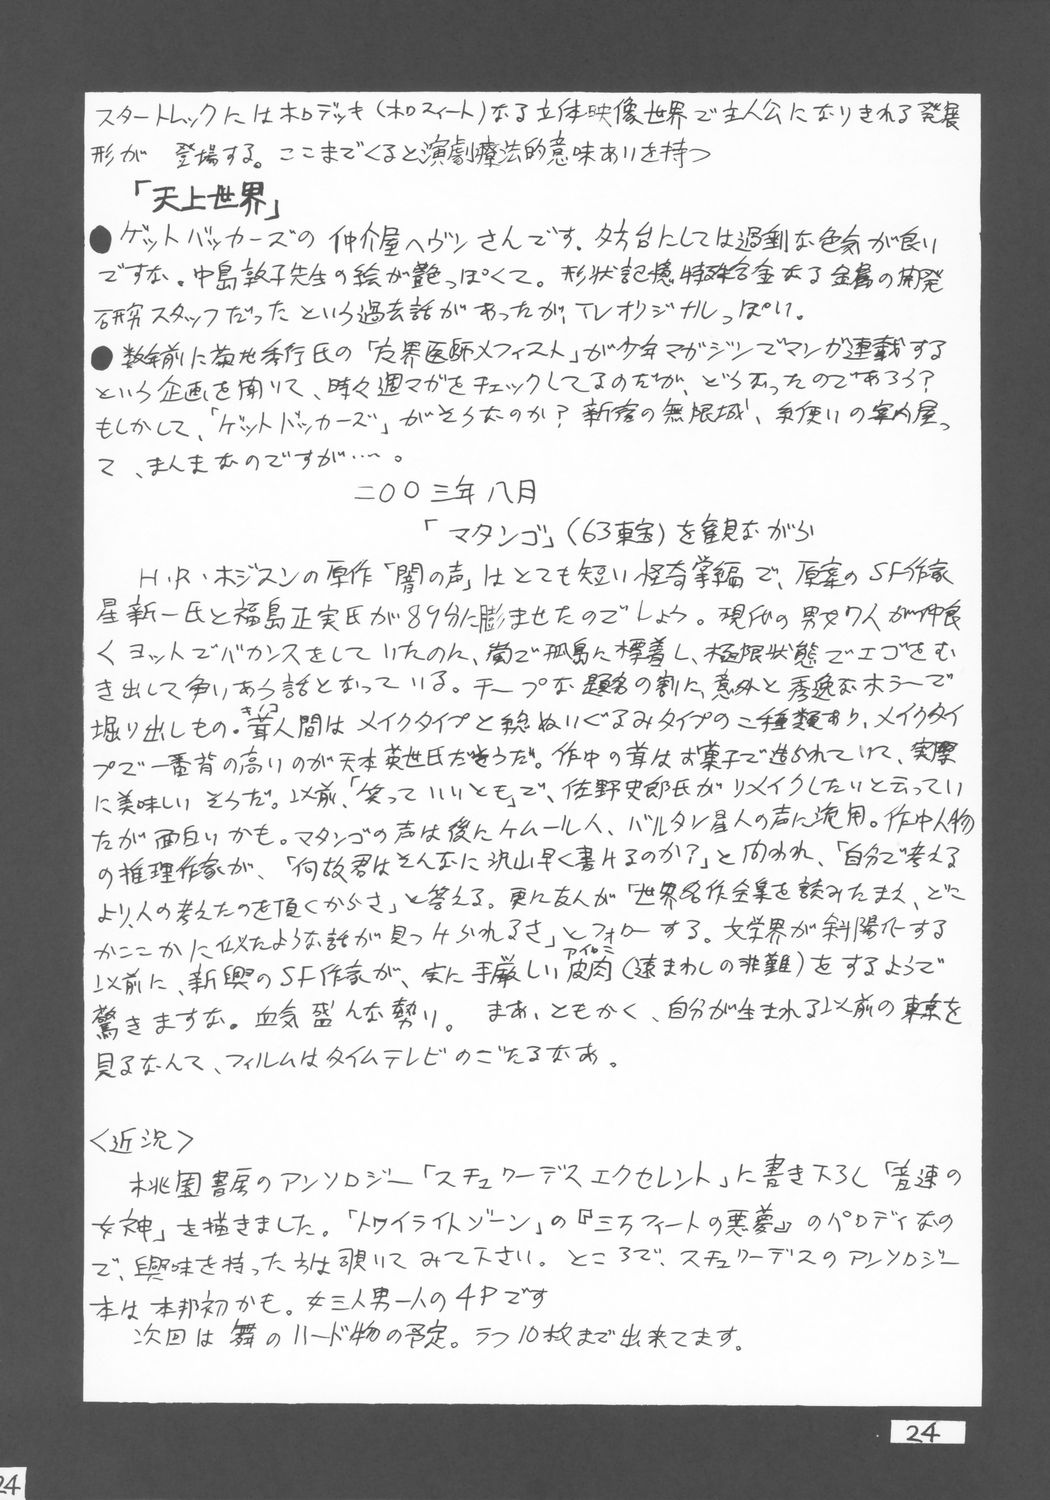 スタートレックにはホロデッキ(ホロスィート)なる立体映像世界で主人公になりきれる発展
形が 登場する。ここまでくると演劇療法的意味あいを持つ
「天上世界」
●ゲットバッカーズの 仲介屋ヘヴンさんです。夕方台にしては過剰な色気が良い
ですな。中島敦子先生の絵が艶っぽくて。形状記憶特殊合金なる金属の開発
研究スタッフだったという過去話があったが、TVオリジナルっぽい。
●数年前に菊地秀行氏の「魔界医師メフィスト」が少年マガジンでマンガ連載する
という企画を聞いて、時々週マガをチェックしてるのだが、どうなったのであろう?
もしかして、「ゲットバッカーズ」がそうなのか?新宿の無限城、糸使いの案内屋っ
て、まんまなのですが…。
二〇〇三年 八月
「マタンゴ」(63東宝)を観ながら
H・R・ホジスンの原作「闇の声」はとても短い怪奇掌編で、原案のSF作家
星新一氏と福島正実氏が89分に膨ませたのでしょう。現代の男女7人が仲良
くヨットでバカンスをしていたのに、嵐で孤島に漂着し、極限状態でエゴをむ
き出して争いあう話となっている。チープな題名の割に、意外と秀逸なホラーで
堀り出しもの。茸人間はメイクタイプとぬいぐるみタイプの二種類あり、メイクタイ
プで一番背の高いのが天本英世氏だそうだ。作中の茸はお菓子で造られていて、実際
に美味しいそうだ。以前、「笑っていいとも」で、佐野史郎氏がリメイクしたいと云ってい
たが面白いかも。マタンゴの声は後にケムール人、バルタン星人の声に流用。作中人物
の推理作家が、「何故君はそんなに沢山早く書けるのか?」と問われ、「自分で考える
より、人の考えたのを頂くからさ」と答える。更に友人が「世界名作全集を読みたまえ、どこ
かここかに似たような話が見つけられるさ」とフォローする。文学界が斜陽化する
以前に、新興のSF作家が、実に手厳しい皮肉(遠まわしの非難)をするようで
驚きますな。血気盛んな勢い。 まあ、ともかく、自分が生まれる以前の東京を
見るなんて、フィルムはタイムテレビのごたるなあ。
<近況>
桃園書房のアンソロジー「スチュワーデスエクセレント」に書き下ろし「音速の
女神」を描きました。「トワイライトゾーン」の『三万フィートの悪夢』のパロディなの
で、興味を持った方は覗いてみて下さい。ところで、スチュワーデスのアンソロジー
本は本邦初かも。女三人男一人の4Pです
次回は舞のハード物の予定。ラフ10枚まで出来てます。
24
24